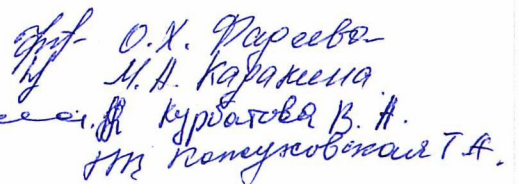 О.Х. Фадеева
М.А. Каракина
Курбатова В.А.
Кожуховская Т.А.